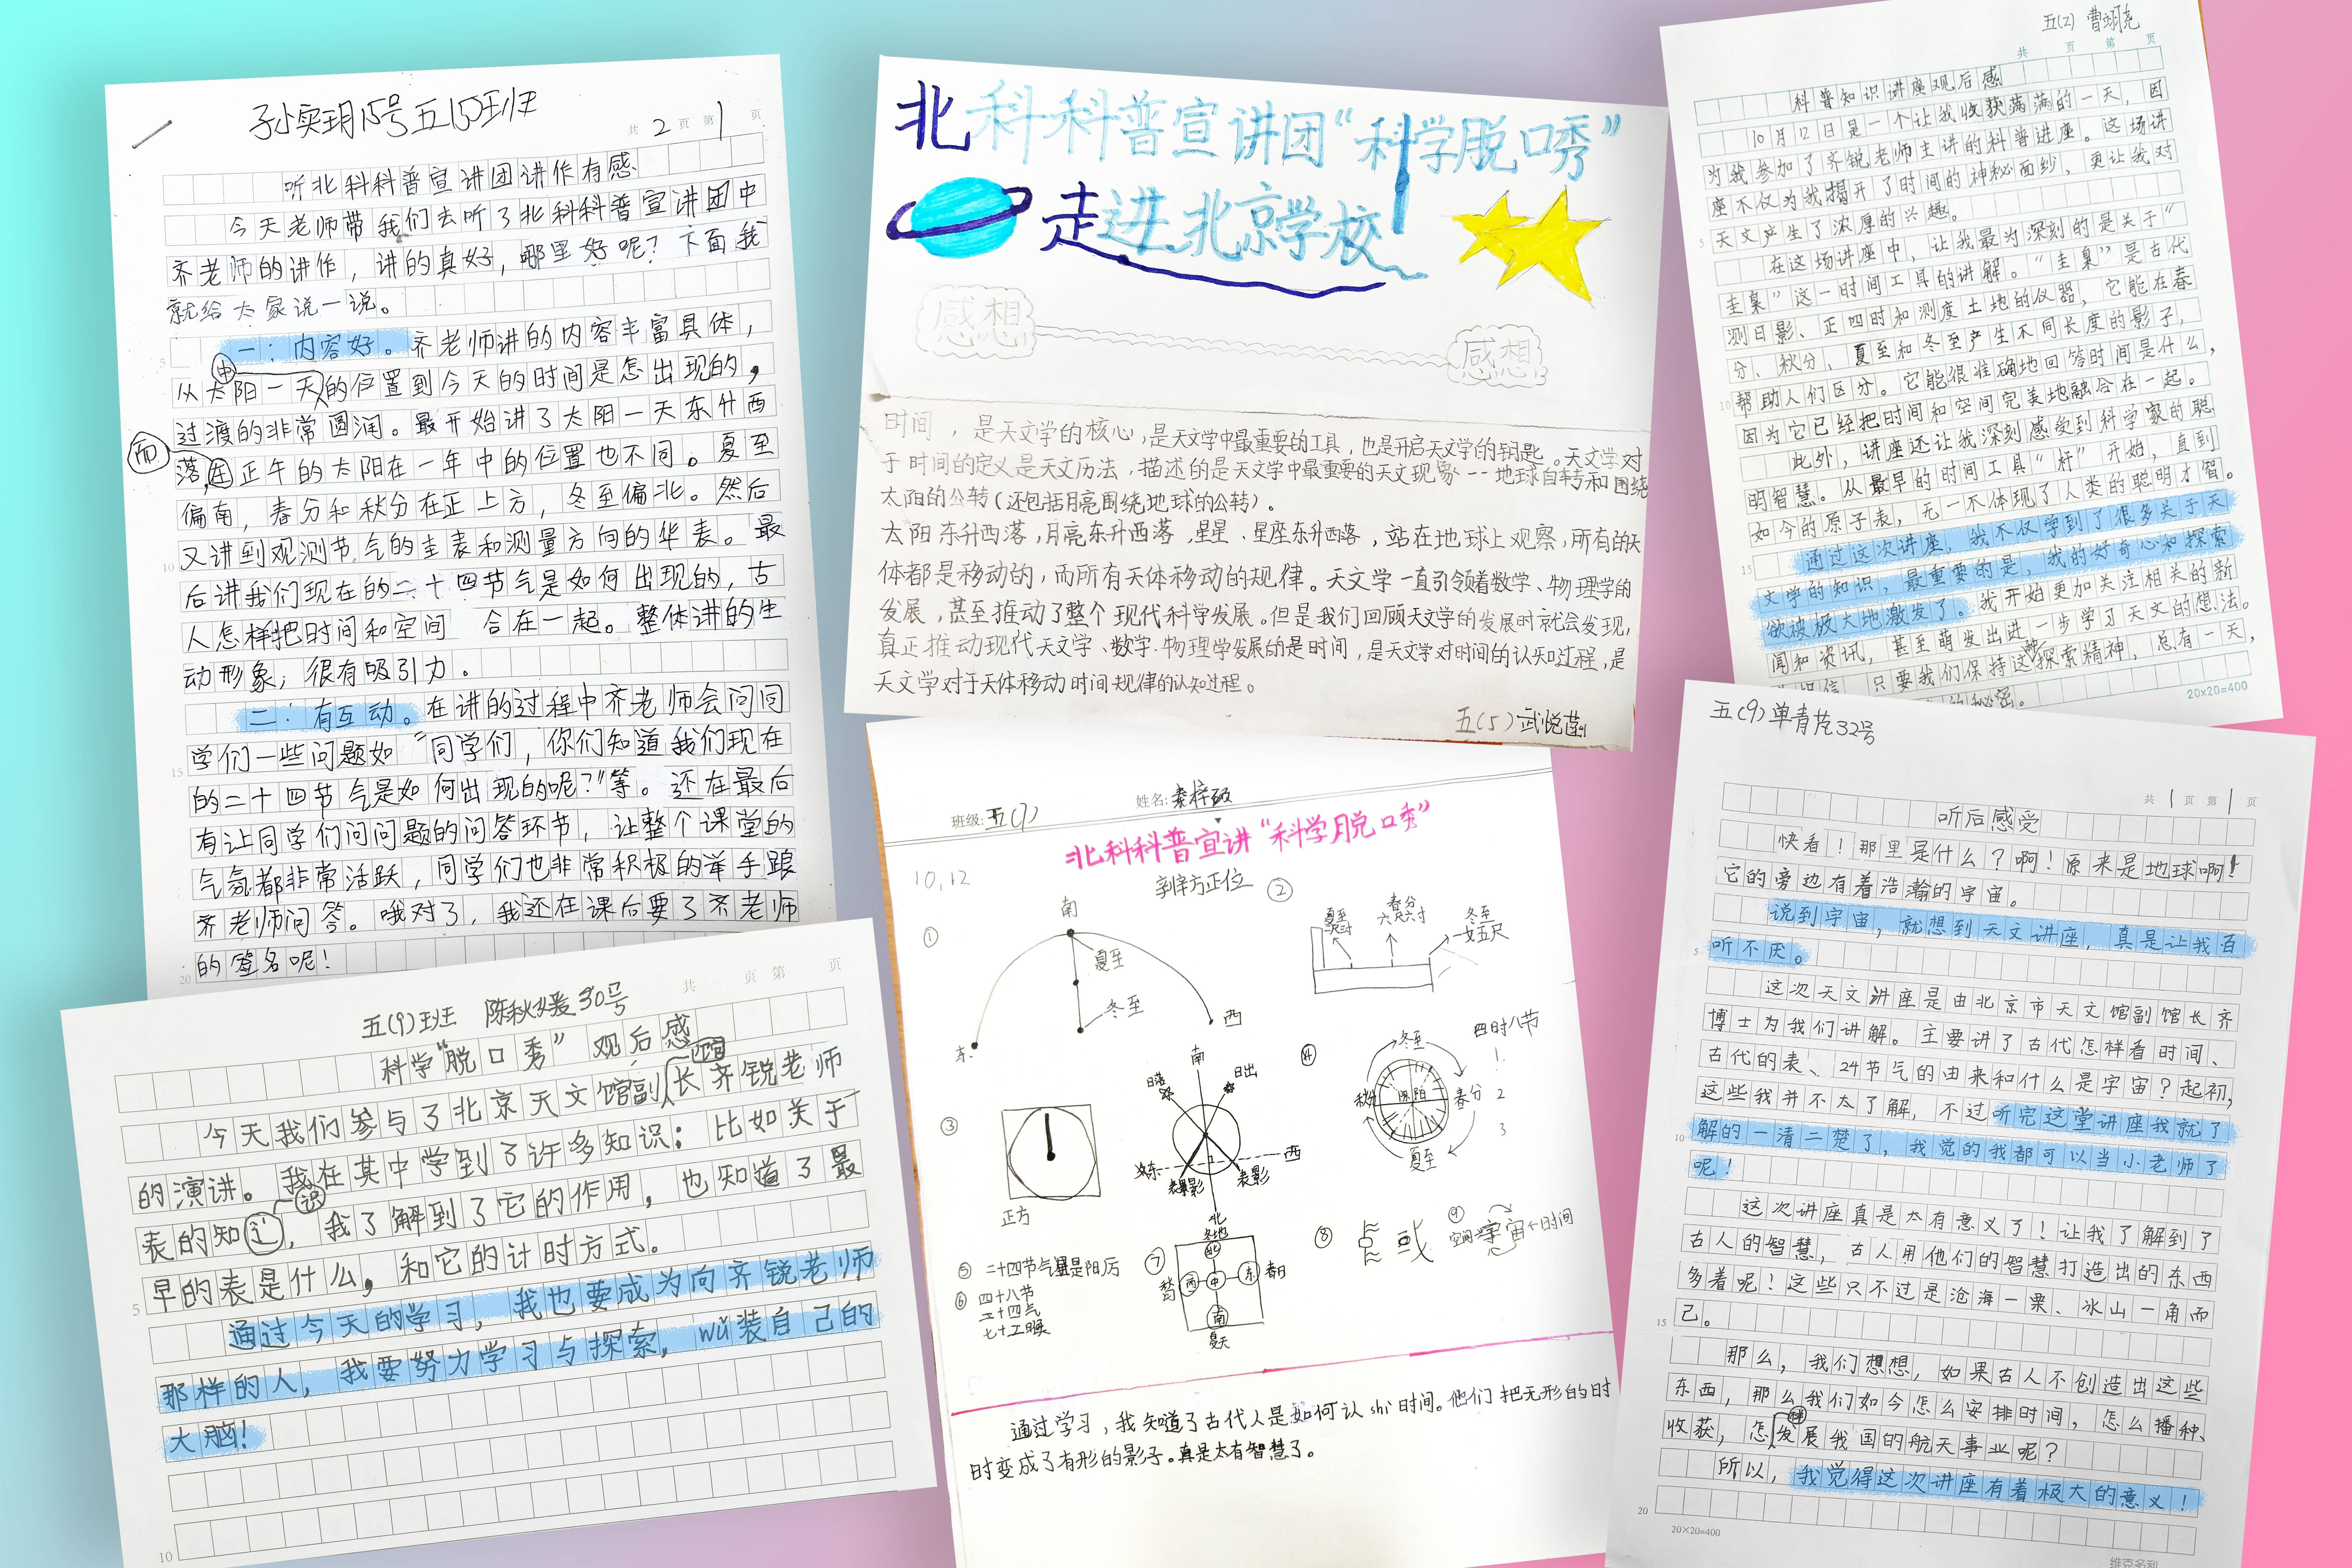 孙奕玥15号五(5)班
共 2 页 第 1 页
听北科科普宣讲团讲作有感
今天老师带我们去听了北科科普宣讲团中
齐老师的讲作，讲的真好，哪里好呢？下面我
就给大家说一说。
一：内容好。齐老师讲的内容丰富具体，
从太阳一天中的位置到今天的时间是怎出现的，
过渡的非常圆润。最开始讲了太阳一天东升西
落，而且正午的太阳在一年中的位置也不同。夏至
偏南，春分和秋分在正上方，冬至偏北。然后
又讲到观测节气的圭表和测量方向的华表。最
后讲我们现在的二十四节气是如何出现的，古
人怎样把时间和空间 合在一起。整体讲的生
动形象，很有吸引力。
二：有互动。在讲的过程中齐老师会问同
学们一些问题如“同学们，你们知道我们现在
的二十四节气是如何出现的呢？”等。还在最后
有让同学们问问题的问答环节，让整个课堂的
气氛都非常活跃，同学们也非常积极的举手跟
齐老师问答。哦对了，我还在课后要了齐老师
的签名呢！
5
10
15
20
北科科普宣讲团“科学脱口秀”
走进北京学校
感想
感想
时间，是天文学的核心，是天文学中最重要的工具，也是开启天文学的钥匙。天文学对
于时间的定义是天文历法，描述的是天文学中最重要的天文现象--地球自转和围绕
太阳的公转（还包括月亮围绕地球的公转）。
太阳东升西落，月亮东升西落，星星、星座东升西落，站在地球上观察，所有的天
体都是移动的，而所有天体移动的规律。天文学一直引领着数学、物理学的
发展，甚至推动了整个现代科学发展。但是我们回顾天文学的发展时就会发现，
真正推动现代天文学、数学、物理学发展的是时间，是天文学对时间的认知过程，是
天文学对于天体移动时间规律的认知过程。
五(5)武悦菡
五(2) 曹翊尧
共 页 第 页
科普知识讲座观后感
10月12日是一个让我收获满满的一天，因
为我参加了齐锐老师主讲的科普进座。这场讲
座不仅为我揭开了时间的神秘面纱，更让我对
天文产生了浓厚的兴趣。
在这场讲座中，让我最为深刻的是关于“
圭臬”这一时间工具的讲解。“圭臬”是古代
测日影、正四时和测度土地的仪器，它能在春
分、秋分、夏至和冬至产生不同长度的影子，
帮助人们区分。它能很准确地回答时间是什么，
因为它已经把时间和空间完美地融合在一起。
此外，讲座还让我深刻感受到科学家的聪
明智慧。从最早的时间工具“杆”开始，直到
如今的原子表，无一不体现了人类的聪明才智。
通过这次讲座，我不仅学到了很多关于天
文学的知识，最重要的是，我的好奇心和探索
欲被极大地激发了。我开始更加关注相关的新
闻和资讯，甚至萌发出进一步学习天文的想法。
相信，只要我们保持这份探索精神，总有一天，
的秘密。
5
10
15
20×20=400
五(9)班 陈秋媛30号
共 页 第 页
科学“脱口秀”观后感
今天我们参与了北京天文馆副馆长齐锐老师
的演讲。我在其中学到了许多知识：比如关于
表的知识，我了解到了它的作用，也知道了最
早的表是什么，和它的计时方式。
通过今天的学习，我也要成为向齐锐老师
那样的人，我要努力学习与探索，wǔ装自己的
大脑！
5
10
班级：五(7)
姓名：秦梓
北科科普宣讲“科学脱口秀”
10,12
辨方正位
①
南
夏至
冬至
东
西
②
夏至
春分
六尺六寸
冬至
一丈五尺
③
正方
南
日落
日出
东
西
表影
表影
北
④
冬至
秋分
阴 阳
春分
夏至
四时八节
1.
2
3
⑤ 二十四节气是阳历
⑥ 四十八节
二十四气
七十二候
⑦
冬地
北
西 中 东
南
夏天
春日
⑧ 或
⑨ 空间→宇宙←时间
通过学习，我知道了古代人是如何认shi时间。他们把无形的时
时变成了有形的影子。真是太有智慧了。
五(9)单青芃32号
共 1 页 第 1 页
听后感受
快看！那里是什么？啊！原来是地球啊！
它的旁边有着浩瀚的宇宙。
说到宇宙，就想到天文讲座，真是让我百
听不厌。
这次天文讲座是由北京市天文馆副馆长齐
博士为我们讲解。主要讲了古代怎样看时间、
古代的表、24节气的由来和什么是宇宙？起初，
这些我并不太了解，不过听完这堂讲座我就了
解的一清二楚了，我觉的我都可以当小老师了
呢！
这次讲座真是太有意义了！让我了解到了
古人的智慧，古人用他们的智慧打造出的东西
多着呢！这些只不过是沧海一粟、冰山一角而
已。
那么，我们想想，如果古人不创造出这些
东西，那么我们如今怎么安排时间，怎么播种、
收获，怎样发展我国的航天事业呢？
所以，我觉得这次讲座有着极大的意义！
5
10
15
20
20×20=400
维克多利